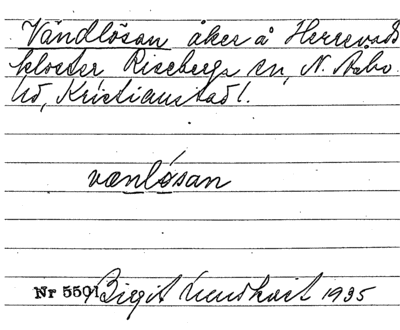 Vändlösan åker å Herrevads
kloster Riseberga sn, N. Åsbo
hd, Kristianstad l.
vænlósan
Nr 5501 Birgit Lundkvist 1935